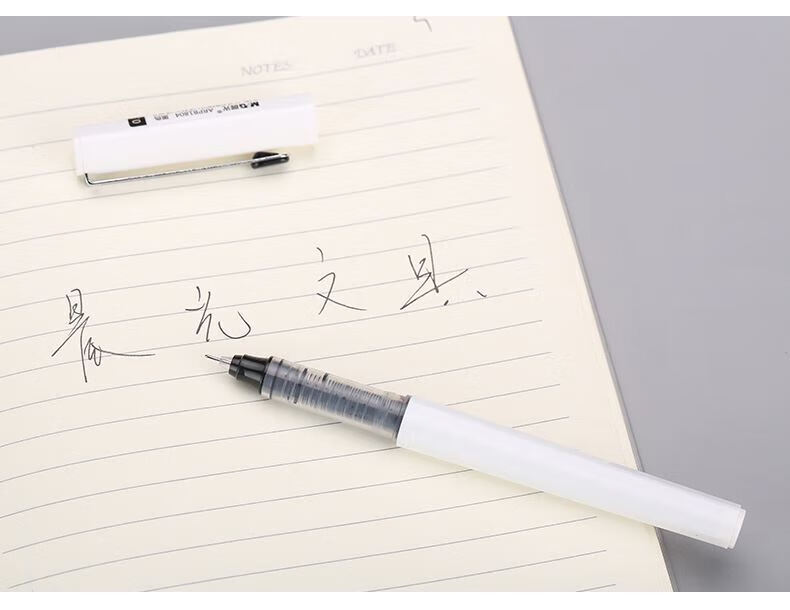 NOTES DATE
M&G 晨光® ARPB1804 黑色
晨光文具